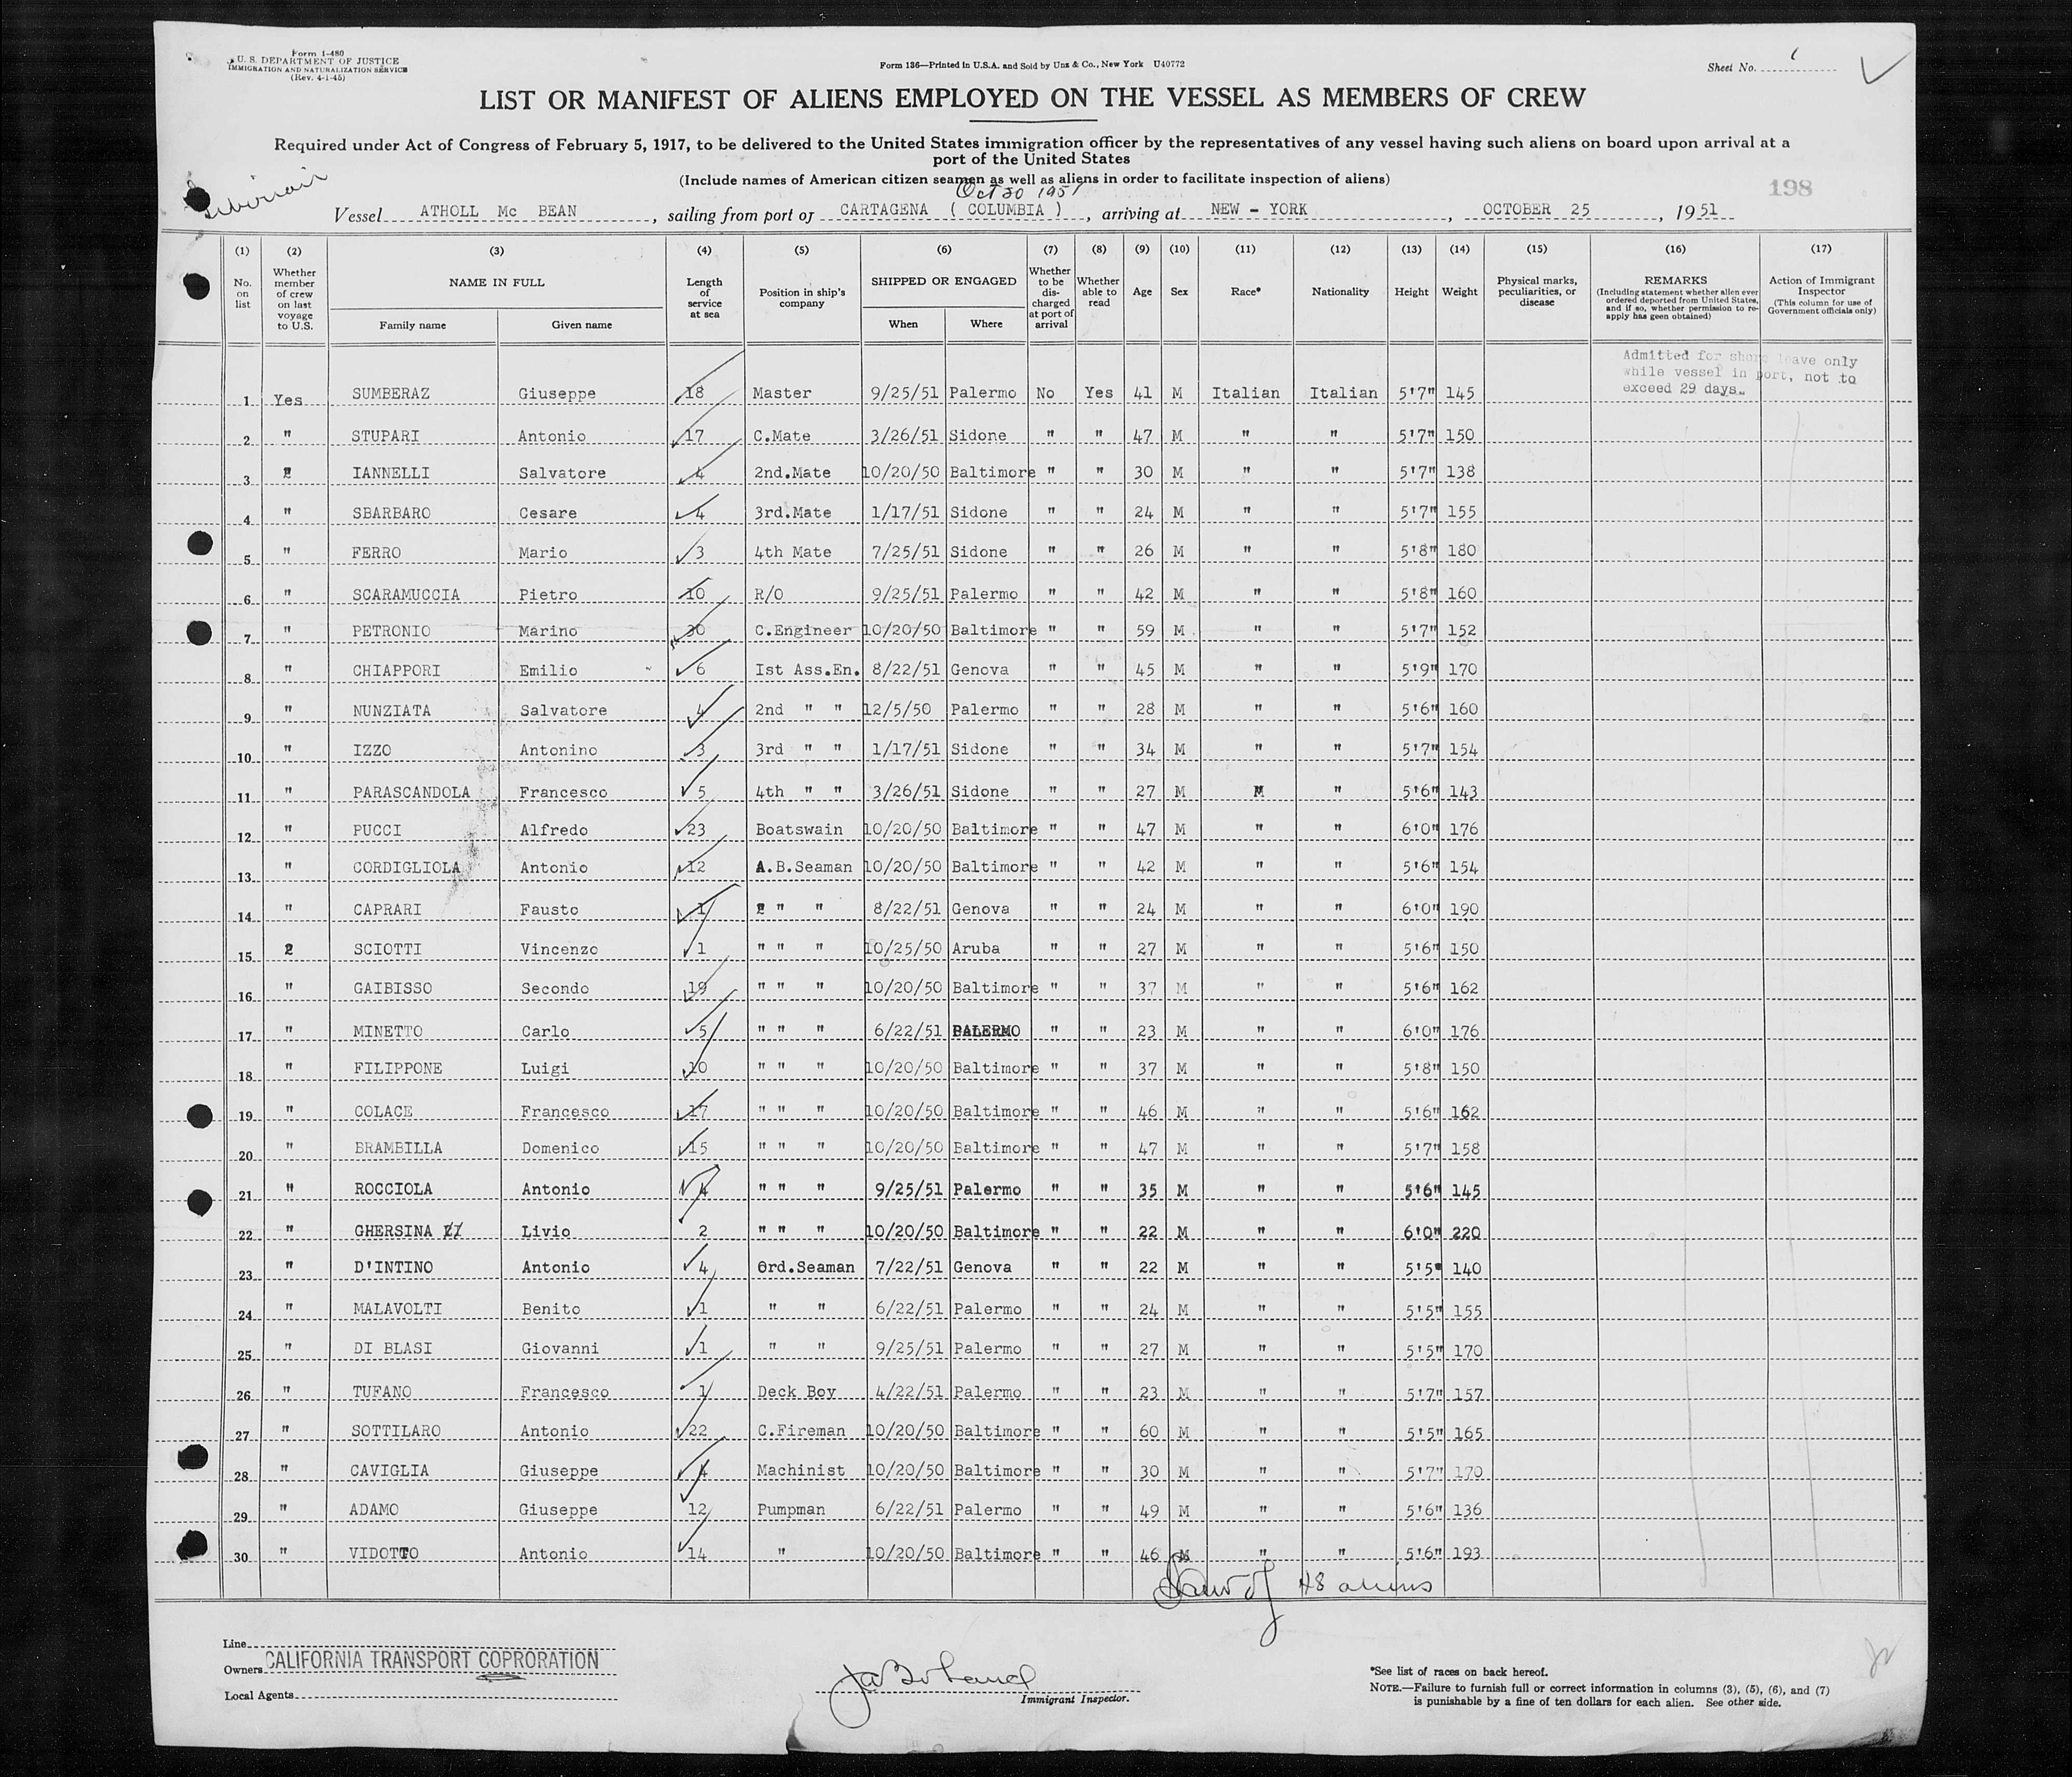 Form 1-480
U. S. DEPARTMENT OF JUSTICE
IMMIGRATION AND NATURALIZATION SERVICE
(Rev. 4-1-45)
Form 136—Printed in U.S.A. and Sold by Unz & Co., New York U40772
Sheet No. 1
LIST OR MANIFEST OF ALIENS EMPLOYED ON THE VESSEL AS MEMBERS OF CREW
Required under Act of Congress of February 5, 1917, to be delivered to the United States immigration officer by the representatives of any vessel having such aliens on board upon arrival at a
port of the United States
(Include names of American citizen seamen as well as aliens in order to facilitate inspection of aliens)
Oct 30 1951
198
Vessel ATHOLL Mc BEAN, sailing from port of CARTAGENA ( COLUMBIA ), arriving at NEW - YORK, OCTOBER 25, 1951
(1) (2) (3) (4) (5) (6) (7) (8) (9) (10) (11) (12) (13) (14) (15) (16) (17)
No. on list Whether member of crew on last voyage to U.S. NAME IN FULL Family name Given name Length of service at sea Position in ship's company SHIPPED OR ENGAGED When Where Whether to be discharged at port of arrival Whether able to read Age Sex Race* Nationality Height Weight Physical marks, peculiarities, or disease REMARKS (Including statement whether alien ever ordered deported from United States, and if so, whether permission to re-apply has geen obtained) Action of Immigrant Inspector (This column for use of Government officials only)
Admitted for shore leave only
while vessel in port, not to
exceed 29 days.
1 Yes SUMBERAZ Giuseppe 18 Master 9/25/51 Palermo No Yes 41 M Italian Italian 5'7" 145
2 " STUPARI Antonio 17 C.Mate 3/26/51 Sidone " " 47 M " " 5'7" 150
3 " IANNELLI Salvatore 4 2nd.Mate 10/20/50 Baltimore " " 30 M " " 5'7" 138
4 " SBARBARO Cesare 4 3rd.Mate 1/17/51 Sidone " " 24 M " " 5'7" 155
5 " FERRO Mario 3 4th Mate 7/25/51 Sidone " " 26 M " " 5'8" 180
6 " SCARAMUCCIA Pietro 10 R/O 9/25/51 Palermo " " 42 M " " 5'8" 160
7 " PETRONIO Marino 30 C.Engineer 10/20/50 Baltimore " " 59 M " " 5'7" 152
8 " CHIAPPORI Emilio 6 Ist Ass.En. 8/22/51 Genova " " 45 M " " 5'9" 170
9 " NUNZIATA Salvatore 4 2nd " " 12/5/50 Palermo " " 28 M " " 5'6" 160
10 " IZZO Antonino 3 3rd " " 1/17/51 Sidone " " 34 M " " 5'7" 154
11 " PARASCANDOLA Francesco 5 4th " " 3/26/51 Sidone " " 27 M " " 5'6" 143
12 " PUCCI Alfredo 23 Boatswain 10/20/50 Baltimore " " 47 M " " 6'0" 176
13 " CORDIGLIOLA Antonio 12 A.B.Seaman 10/20/50 Baltimore " " 42 M " " 5'6" 154
14 " CAPRARI Fausto 1 " " " 8/22/51 Genova " " 24 M " " 6'0" 190
15 " SCIOTTI Vincenzo 1 " " " 10/25/50 Aruba " " 27 M " " 5'6" 150
16 " GAIBISSO Secondo 19 " " " 10/20/50 Baltimore " " 37 M " " 5'6" 162
17 " MINETTO Carlo 5 " " " 6/22/51 PALERMO " " 23 M " " 6'0" 176
18 " FILIPPONE Luigi 10 " " " 10/20/50 Baltimore " " 37 M " " 5'8" 150
19 " COLACE Francesco 17 " " " 10/20/50 Baltimore " " 46 M " " 5'6" 162
20 " BRAMBILLA Domenico 15 " " " 10/20/50 Baltimore " " 47 M " " 5'7" 158
21 " ROCCIOLA Antonio 4 " " " 9/25/51 Palermo " " 35 M " " 5'6" 145
22 " GHERSINA Livio 2 " " " 10/20/50 Baltimore " " 22 M " " 6'0" 220
23 " D'INTINO Antonio 4 Ord.Seaman 7/22/51 Genova " " 22 M " " 5'5" 140
24 " MALAVOLTI Benito 1 " " 6/22/51 Palermo " " 24 M " " 5'5" 155
25 " DI BLASI Giovanni 1 " " 9/25/51 Palermo " " 27 M " " 5'5" 170
26 " TUFANO Francesco 1 Deck Boy 4/22/51 Palermo " " 23 M " " 5'7" 157
27 " SOTTILARO Antonio 22 C.Fireman 10/20/50 Baltimore " " 60 M " " 5'5" 165
28 " CAVIGLIA Giuseppe 4 Machinist 10/20/50 Baltimore " " 30 M " " 5'7" 170
29 " ADAMO Giuseppe 12 Pumpman 6/22/51 Palermo " " 49 M " " 5'6" 136
30 " VIDOTTO Antonio 14 " 10/20/50 Baltimore " " 46 M " " 5'6" 193
48 aliens
Line
Owners CALIFORNIA TRANSPORT COPRORATION
Local Agents
Immigrant Inspector.
*See list of races on back hereof.
NOTE.—Failure to furnish full or correct information in columns (3), (5), (6), and (7)
is punishable by a fine of ten dollars for each alien. See other side.